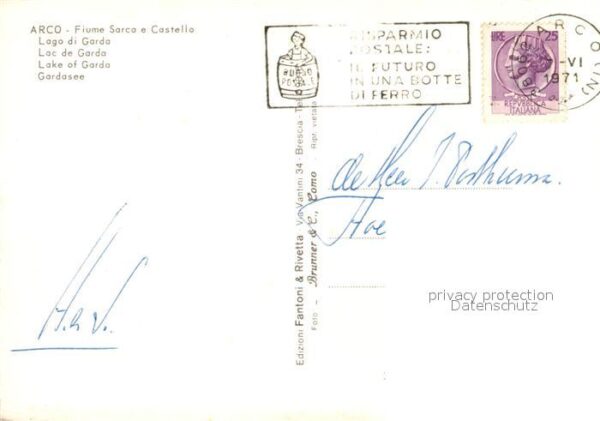 ARCO - Fiume Sarca e Castello
Lago di Garda
Lac de Garda
Lake of Garda
Gardasee
RISPARMIO
POSTALE:
IL FUTURO
IN UNA BOTTE
DI FERRO
LIRE 25
REPVBBLICA
ITALIANA
ARCO (TN)
-VI
1971
Edizioni Fantoni & Rivetta - Via Vantini 34 - Brescia - Te
Foto - Brunner & C., Como - Ripr. vietata
de Heer J. Posthuma.
privacy protection
Datenschutz